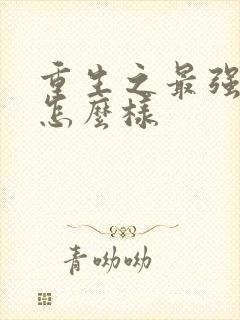 重生之最强
怎麼樣
青呦呦